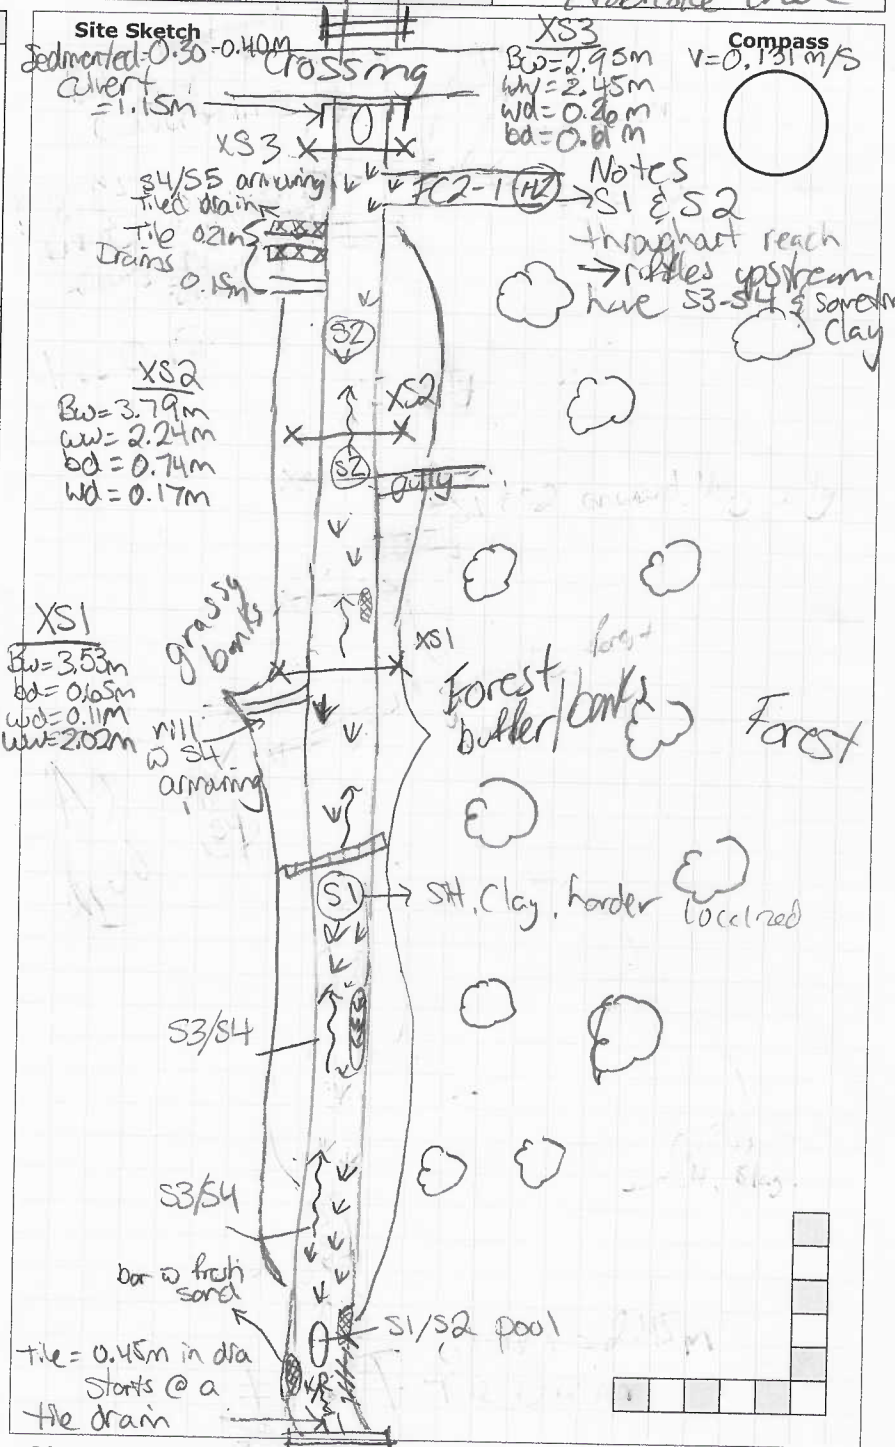 Site Sketch
Sedimented=0.30-0.40m
culvert
=1.15m
Crossing
XS3
Bw=2.95m
ww=2.45m
wd=0.26m
bd=0.61m
Compass
V=0.131m/s
XS3
S4/S5 armouring
Tiled drain
Tile 0.21m
Drains
0.15m
FC2-1 H2
Notes
S1 & S2
throughout reach
→ riffles upstream
have S3-S4 &
Clay
S2
XS2
Bw=3.79m
ww=2.24m
bd=0.74m
wd=0.17m
XS2
S2
gully
grassy
banks
XS1
Bw=3.53m
bd=0.65m
wd=0.11m
ww=2.02m
XS1
rill
w S4
armouring
Forest
buffer/banks
Forest
S1 → SH, Clay, harder
Localized
S3/S4
S3/S4
bar w fresh
sand
S1/S2 pool
tile = 0.45m in dia
Starts @ a
tile drain